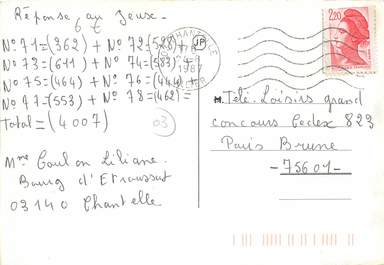 Réponse au Jeux.
N° 71=(362) + N° 72=(528)+
N° 73=(611) + N° 74=(583)+
N° 75=(464) + N° 76=(444)+
N° 77=(553) + N° 78=(462)=
Total=(4007)
Mme Coulon Liliane.
Bourg d'Etroussat
03140 Chantelle
03
CHANTELLE
1987
ALLIER
2,20
M. Télé. Loisirs grand
concours Cedex 823
Paris Brune
-75601-